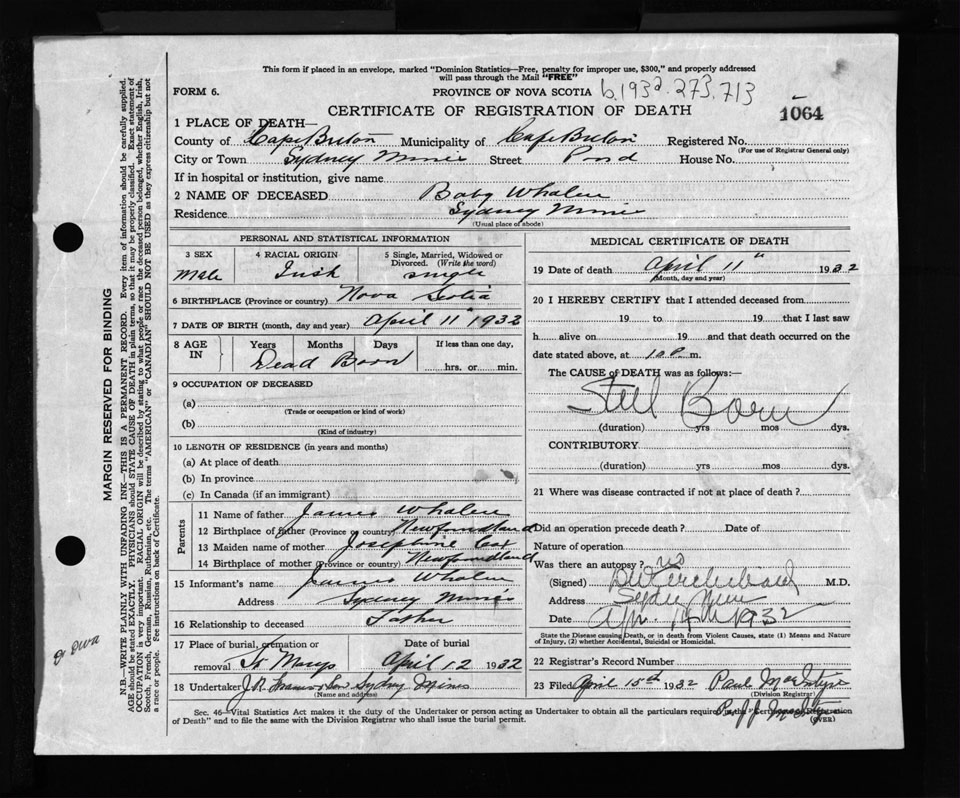 This form if placed in an envelope, marked "Dominion Statistics—Free, penalty for improper use, $300," and properly addressed
will pass through the Mail "FREE"
FORM 6.
PROVINCE OF NOVA SCOTIA b.1932.273.713
CERTIFICATE OF REGISTRATION OF DEATH
1064
1 PLACE OF DEATH—
County of Cape Breton Municipality of Cape Breton Registered No.
(For use of Registrar General only)
City or Town Sydney Mines Street Pond House No.
If in hospital or institution, give name
2 NAME OF DECEASED Baby Whalen
Residence Sydney Mines
(Usual place of abode)
PERSONAL AND STATISTICAL INFORMATION
3 SEX Male
4 RACIAL ORIGIN Irish
5 Single, Married, Widowed or Divorced. (Write the word) single
6 BIRTHPLACE (Province or country) Nova Scotia
7 DATE OF BIRTH (month, day and year) April 11" 1932
8 AGE IN Years Months Days If less than one day,
Dead Born hrs. or min.
9 OCCUPATION OF DECEASED
(a)
(Trade or occupation or kind of work)
(b)
(Kind of industry)
10 LENGTH OF RESIDENCE (in years and months)
(a) At place of death
(b) In province
(c) In Canada (if an immigrant)
Parents
11 Name of father James Whalen
12 Birthplace of father (Province or country) Newfoundland
13 Maiden name of mother Josephine Cox
14 Birthplace of mother (Province or country) Newfoundland
15 Informant's name James Whalen
Address Sydney Mines
16 Relationship to deceased Father
17 Place of burial, cremation or removal St Marys
Date of burial April 12 1932
18 Undertaker J.R. & Son Sydney Mines
(Name and address)
MEDICAL CERTIFICATE OF DEATH
19 Date of death April 11" 1932
(Month, day and year)
20 I HEREBY CERTIFY that I attended deceased from
19 to 19 that I last saw
h alive on 19 and that death occurred on the
date stated above, at 10 P m.
The CAUSE of DEATH was as follows:—
Still Born
(duration) yrs mos dys.
CONTRIBUTORY
(duration) yrs mos dys.
21 Where was disease contracted if not at place of death?
Did an operation precede death? Date of
Nature of operation
Was there an autopsy? no
(Signed) Archibald M.D.
Address Sydney Mines
Date Apr. 1932
State the Disease causing Death, or in death from Violent Causes, state (1) Means and Nature
of Injury, (2) whether Accidental, Suicidal or Homicidal.
22 Registrar's Record Number
23 Filed April 15th 1932 Paul MacIntyre
(Division Registrar)
Sec. 46—Vital Statistics Act makes it the duty of the Undertaker or person acting as Undertaker to obtain all the particulars required in the "Certificate Registration
of Death" and to file the same with the Division Registrar who shall issue the burial permit.
(OVER)
MARGIN RESERVED FOR BINDING
N.B.—WRITE PLAINLY WITH UNFADING INK—THIS IS A PERMANENT RECORD. Every item of information should be carefully supplied.
AGE should be stated EXACTLY. PHYSICIANS should STATE CAUSE OF DEATH in plain terms, so that it may be properly classified. Exact statement of
OCCUPATION is very important. RACIAL ORIGIN will be described by stating to what people or race the deceased person belonged, whether English, Irish,
Scotch, French, German, Russian, Ruthenian, etc. The terms "AMERICAN" or "CANADIAN" SHOULD NOT BE USED as they express citizenship but not
a race or people. See instructions on back of Certificate.